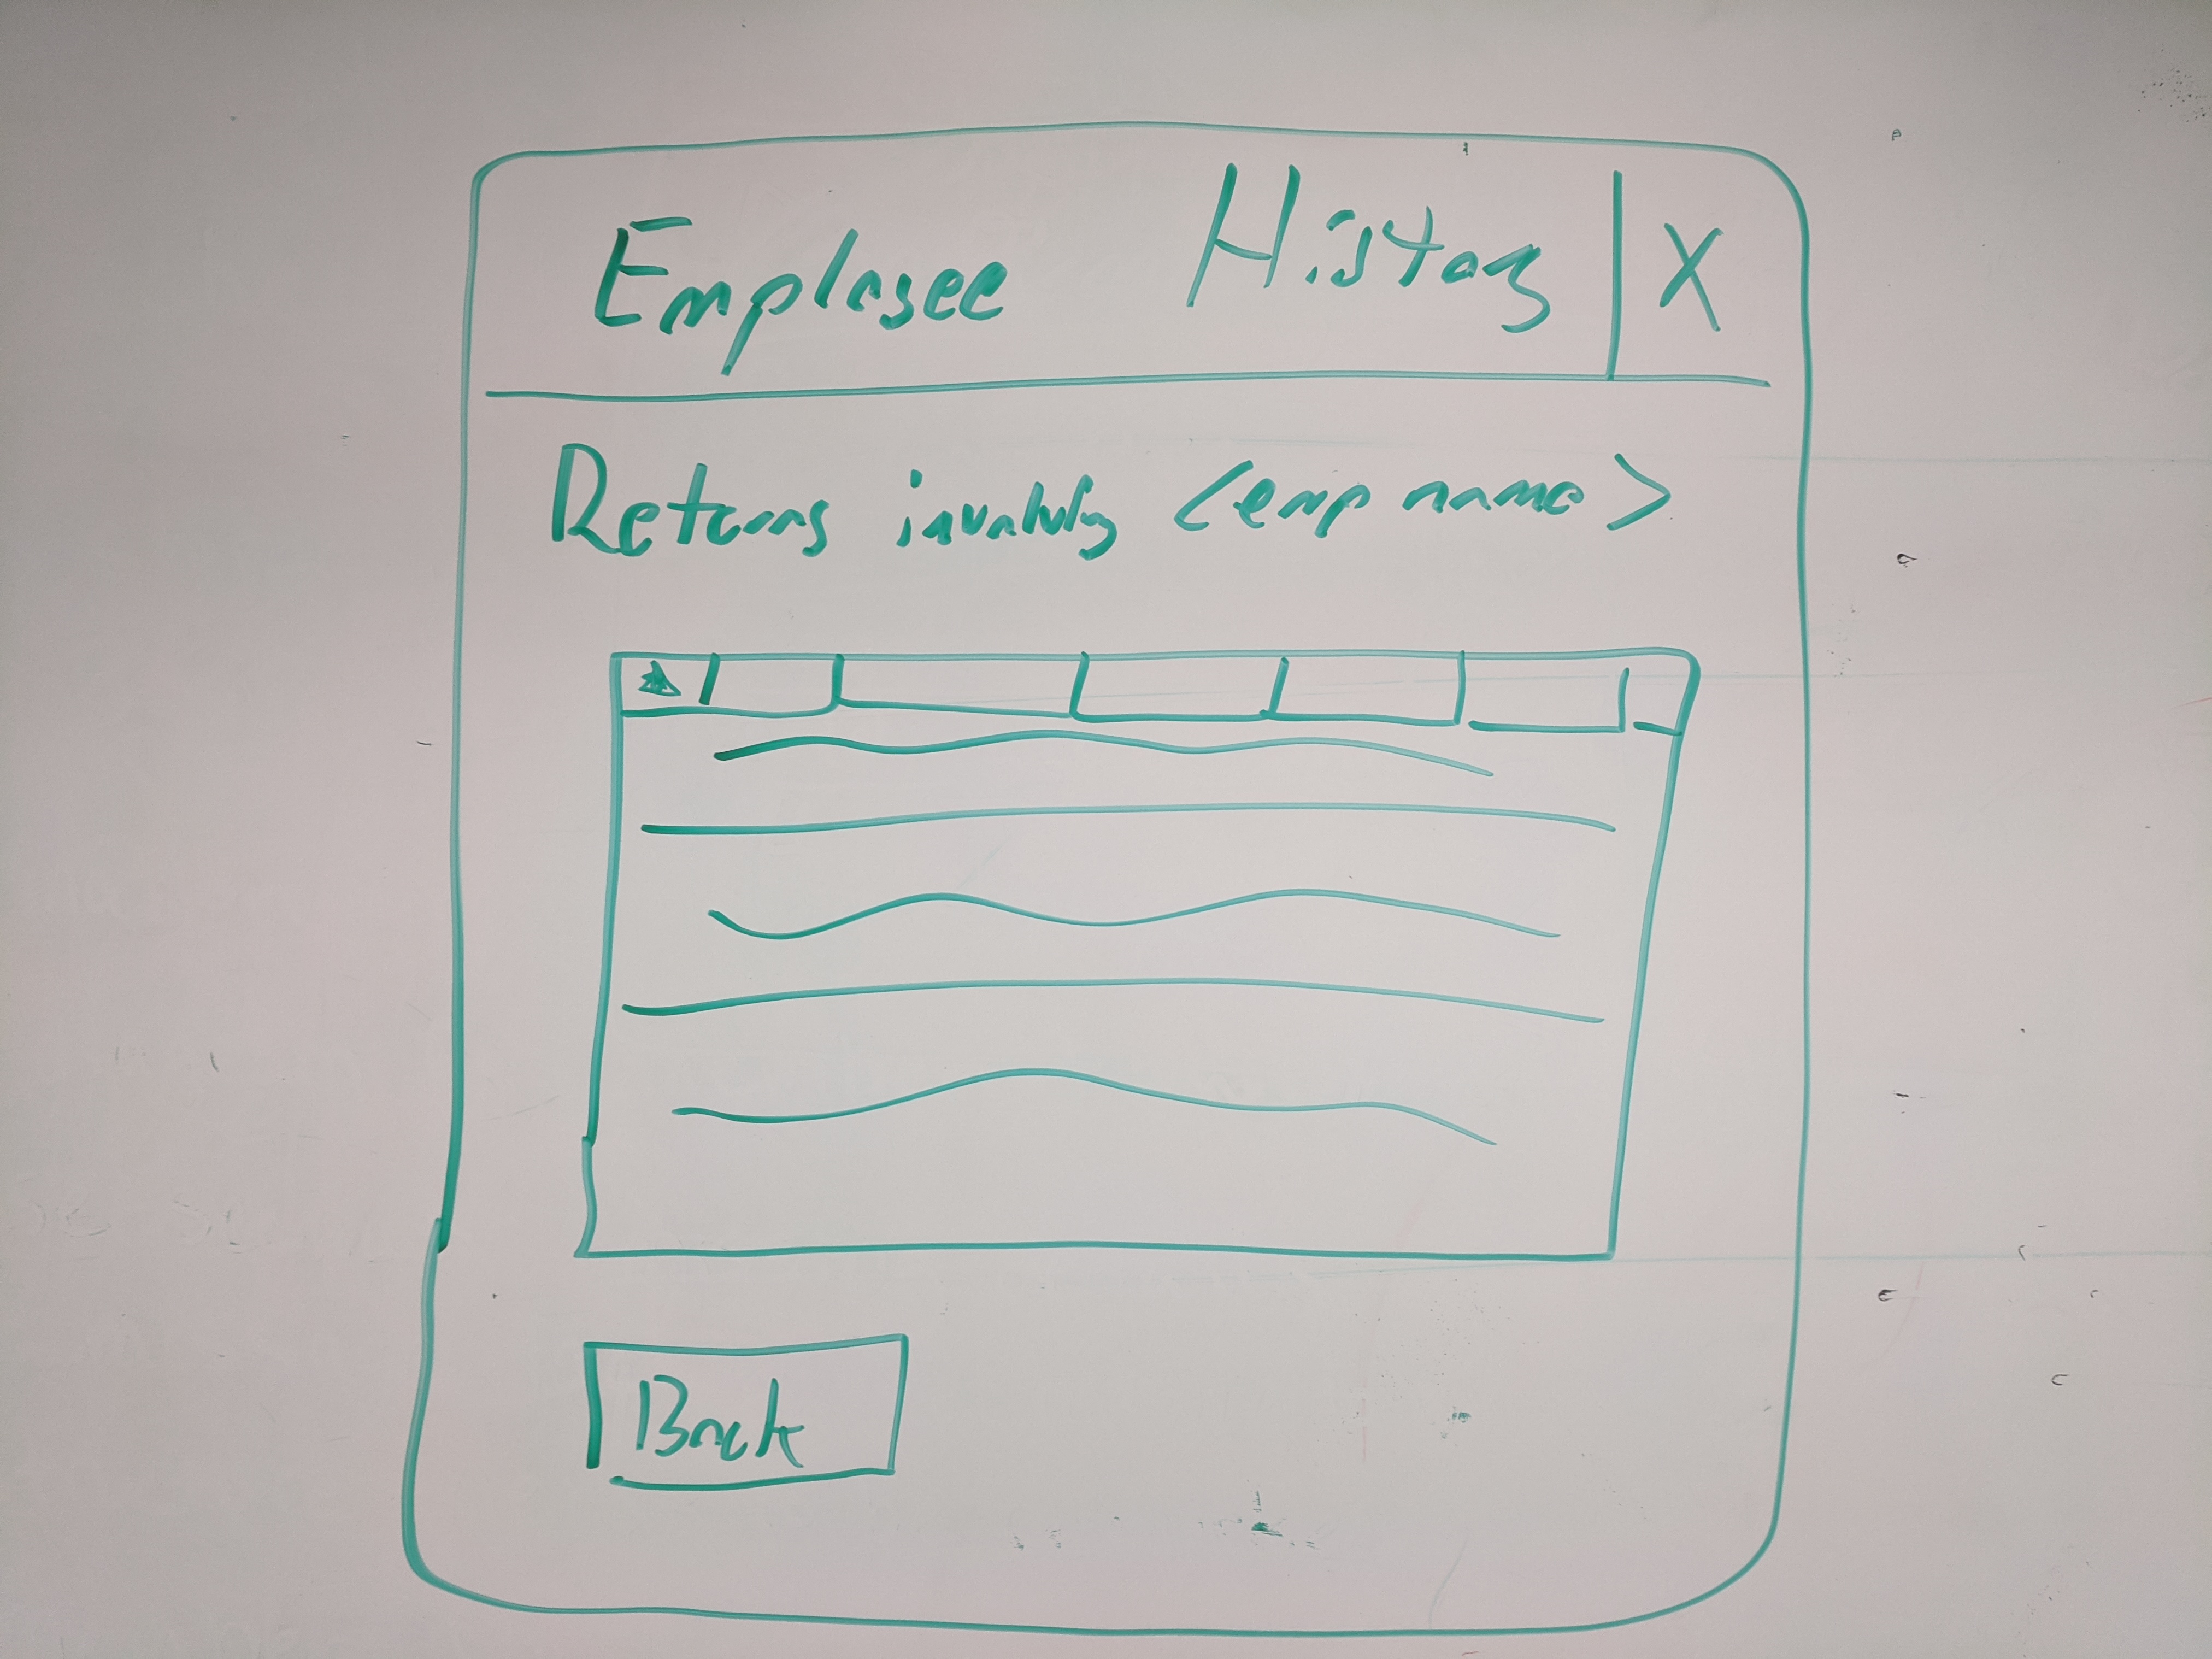 Employee History X
Returns involving <emp name>
Back